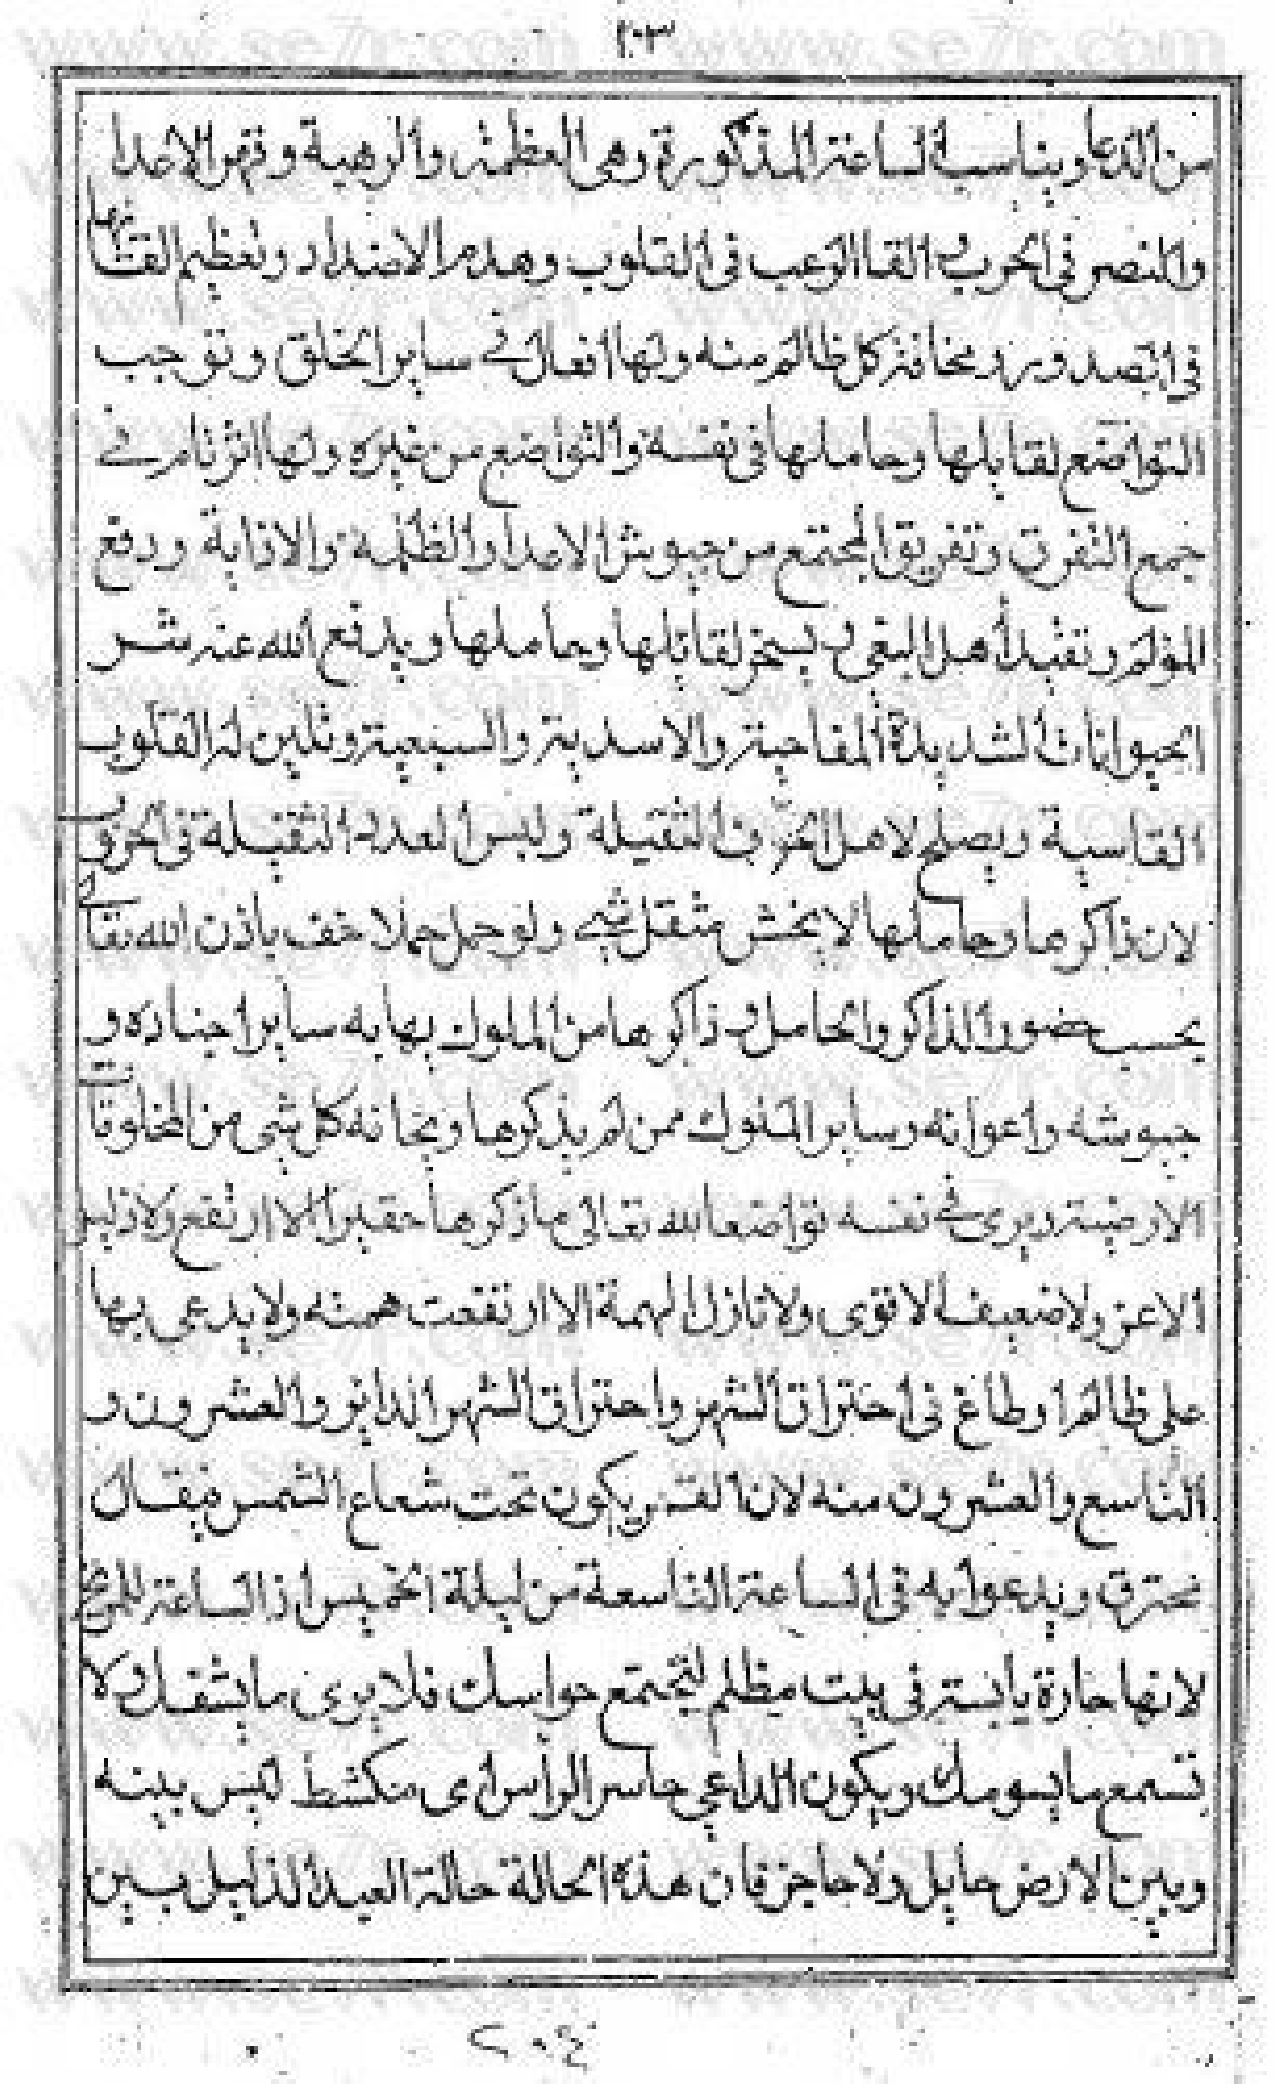 ٢٠٣
من الدعا ويناسب الساعة المذكورة وهى العظمة والرهبة وقهر الاعدا
والنصر فى الحرب والقا الرعب فى القلوب وهدم الاضداد وتعظيم القائلها
فى الصدور ومخافة كل ظالم منه ولها افعال فى ساير الخلق وتوجب
التواضع لقايلها وحاملها فى نفسه والتواضع من غيره ولها اثر تام فى
جمع التفرق وتفريق المجتمع من جيوش الاعدا والظلمة والاذاية ودفع
المؤلم وتقيد أهل البغى ويسخر لقائلها وحاملها ويدفع الله عنه شر
الحيوانات الشديدة المفاجية والاسدية والسبعية وتلين له القلوب
القاسية ويصلح لاهل الحرف الثقيلة ولبس العدد الثقيلة فى الحروب
لان ذاكرها وحاملها لا يخش مثقل شى ولو حمل حملا خف باذن الله تعالى
بحسب حضور الذاكر والحامل و ذاكرها من الملوك يهابه ساير اجناده و
جيوشه واعوانه وساير الملوك ممن لم يذكرها ويخافه كل شى من المخلوقات
الارضية ويرى فى نفسه تواضعا لله تعالى ما ذكرها حقيرا الا ارتفع ولا ذليل
الا عز ولا ضعيف الا قوى ولا نازل الهمة الا ارتفعت همته ولا يدعى بها
على ظالم او طاغ فى احتراق الشهر واحتراق الشهر الثامن والعشرون و
التاسع والعشرون منه لان القمر يكون تحت شعاع الشمس فيقال
محترق ويدعوا به فى الساعة التاسعة من ليلة الخميس اذ الساعة للمريخ
لانها حارة يابسة فى بيت مظلم لتجتمع حواسك فلا يرى ما يشغلك ولا
تسمع ما يسومك ويكون الداعى حاسر الراس اى منكشط ليس بينه
وبين الارض حايل ولا حاجز فان هذه الحالة حالة العبد الذليل بين
٢٠٤
www.se7r.com